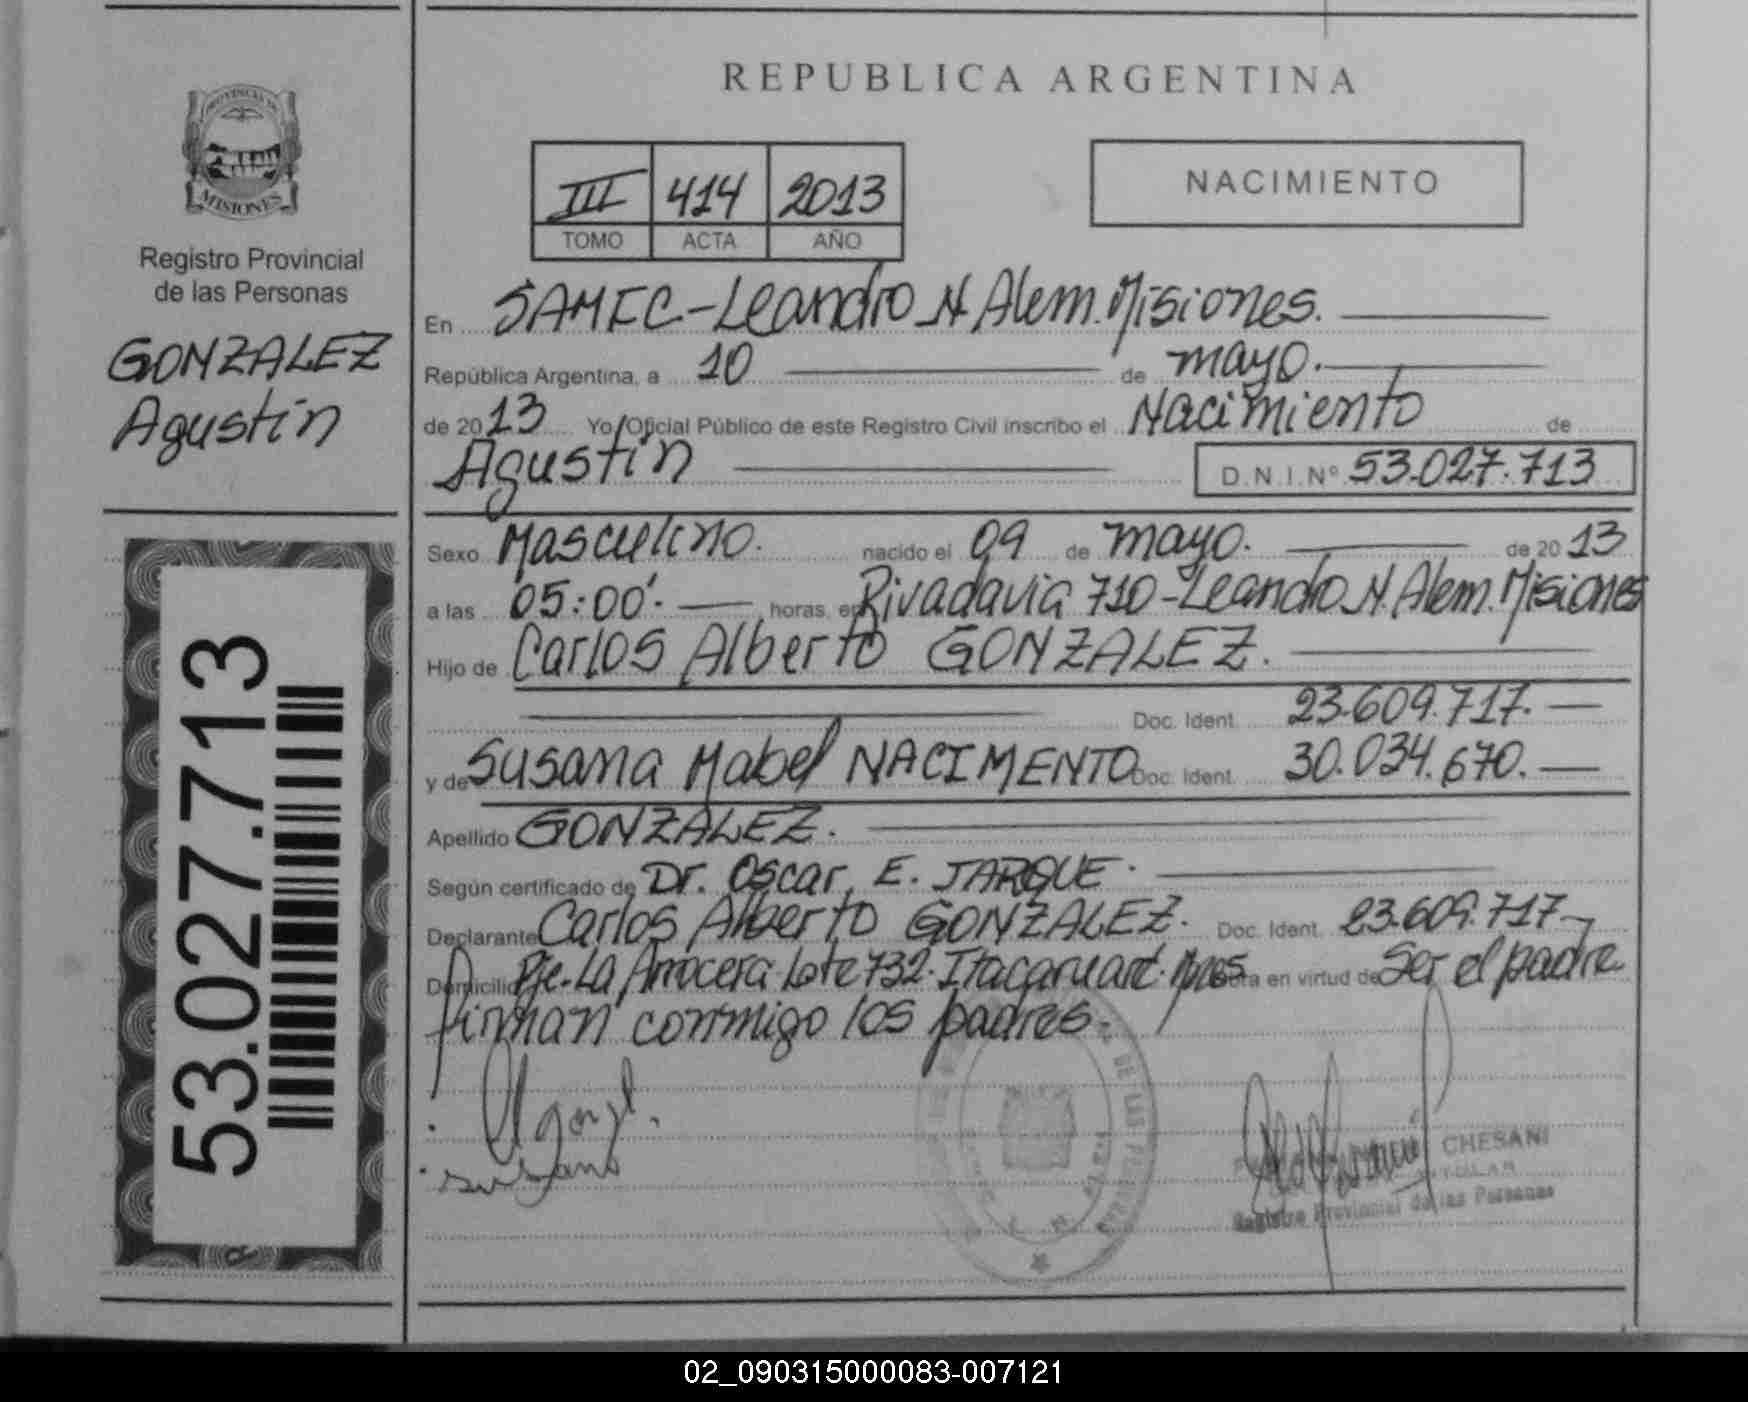 REPUBLICA ARGENTINA
PROVINCIA DE
MISIONES
Registro Provincial
de las Personas
GONZALEZ
Agustín
53.027.713
III 414 2013
TOMO ACTA AÑO
NACIMIENTO
En SAMIC-Leandro N. Alem. Misiones.
República Argentina, a 10 de mayo.
de 2013 Yo, Oficial Público de este Registro Civil inscribo el Nacimiento de
Agustín D.N.I.Nº 53.027.713
Sexo Masculino. nacido el 09 de mayo. de 2013
a las 05:00'. horas, en Rivadavia 710-Leandro N. Alem. Misiones
Hijo de Carlos Alberto GONZALEZ.
Doc. Ident. 23.609.717.
y de Susana Mabel NACIMENTO Doc. Ident. 30.034.670.
Apellido GONZALEZ.
Según certificado de Dr. Oscar E. JARQUE.
Declarante Carlos Alberto GONZALEZ. Doc. Ident. 23.609.717
Domicilio Pje-La Arrocera-Lote 732. Itacaruaré. Mnes en virtud de Ser el padre
firman conmigo los padres.
DE LAS PERSONAS
CHESANI
TITULAR
Registro Provincial de las Personas
02_090315000083-007121